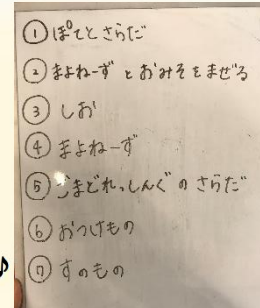 ① ぽてとさらだ
② まよねーず と おみそ を まぜる
③ しお
④ まよねーず
⑤ ごまどれっしんぐ の さらだ
⑥ おつけもの
⑦ すのもの
♪